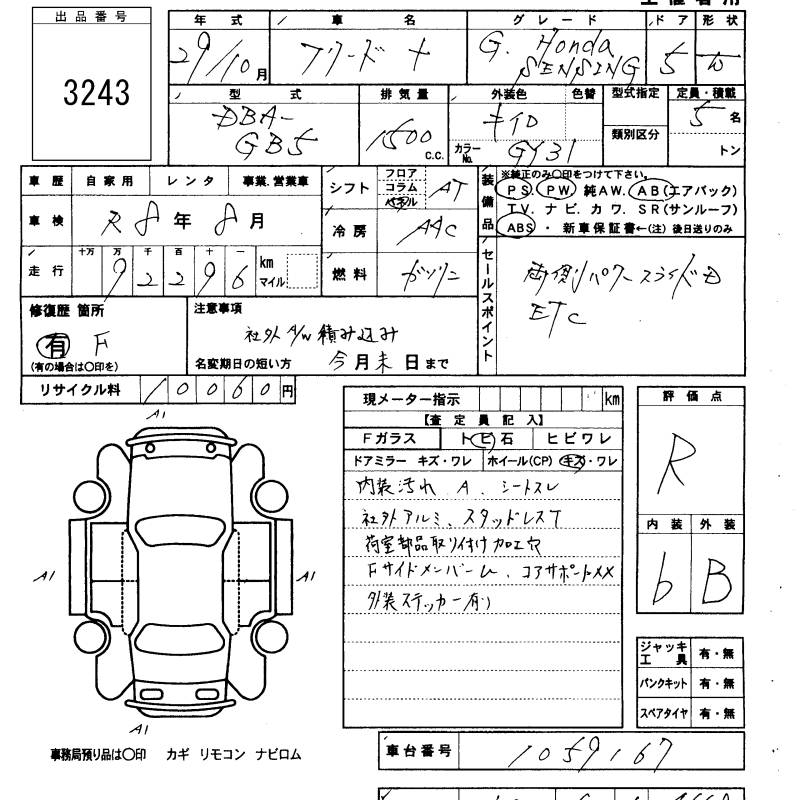 出品番号
3243
年式 車名 グレード ドア 形状
29/10月 フリード + G. Honda SENSING 5 W
型式 排気量 外装色 色替 型式指定 定員・積載
DBA-GB5 1500 c.c. キイロ 類別区分 5名
カラーNo. GY31 トン
車歴 自家用 レンタ 事業.営業車
車検 R8年8月
走行 十万 万 千 百 十 一
92296 km マイル
シフト フロア コラム パネル AT
冷房 AAC
燃料 ガソリン
装備品 ※純正のみ○印をつけて下さい。
PS. PW 純AW. AB(エアバック)
TV. ナビ. カワ. SR(サンルーフ)
ABS ・ 新車保証書←(注) 後日送りのみ
セールスポイント
両側パワースライドD
ETC
修復歴 箇所
有 F
(有の場合は○印を)
注意事項
社外A/W積み込み
名変期日の短い方 今月末日まで
リサイクル料 10060円
現メーター指示 km
【査定員記入】
Fガラス トビ石 ヒビワレ
ドアミラー キズ・ワレ ホイール(CP) キズ・ワレ
内装汚れ A、シートスレ
社外アルミ、スタッドレスT
荷室部品取り付け加工穴
FサイドメンバーU、コアサポートXX
外装ステッカー有り
評価点
R
内装 外装
b B
ジャッキ工具 有・無
パンクキット 有・無
スペアタイヤ 有・無
A1
A1
A1
A1
事務局預り品は○印 カギ リモコン ナビロム
車台番号 1059167